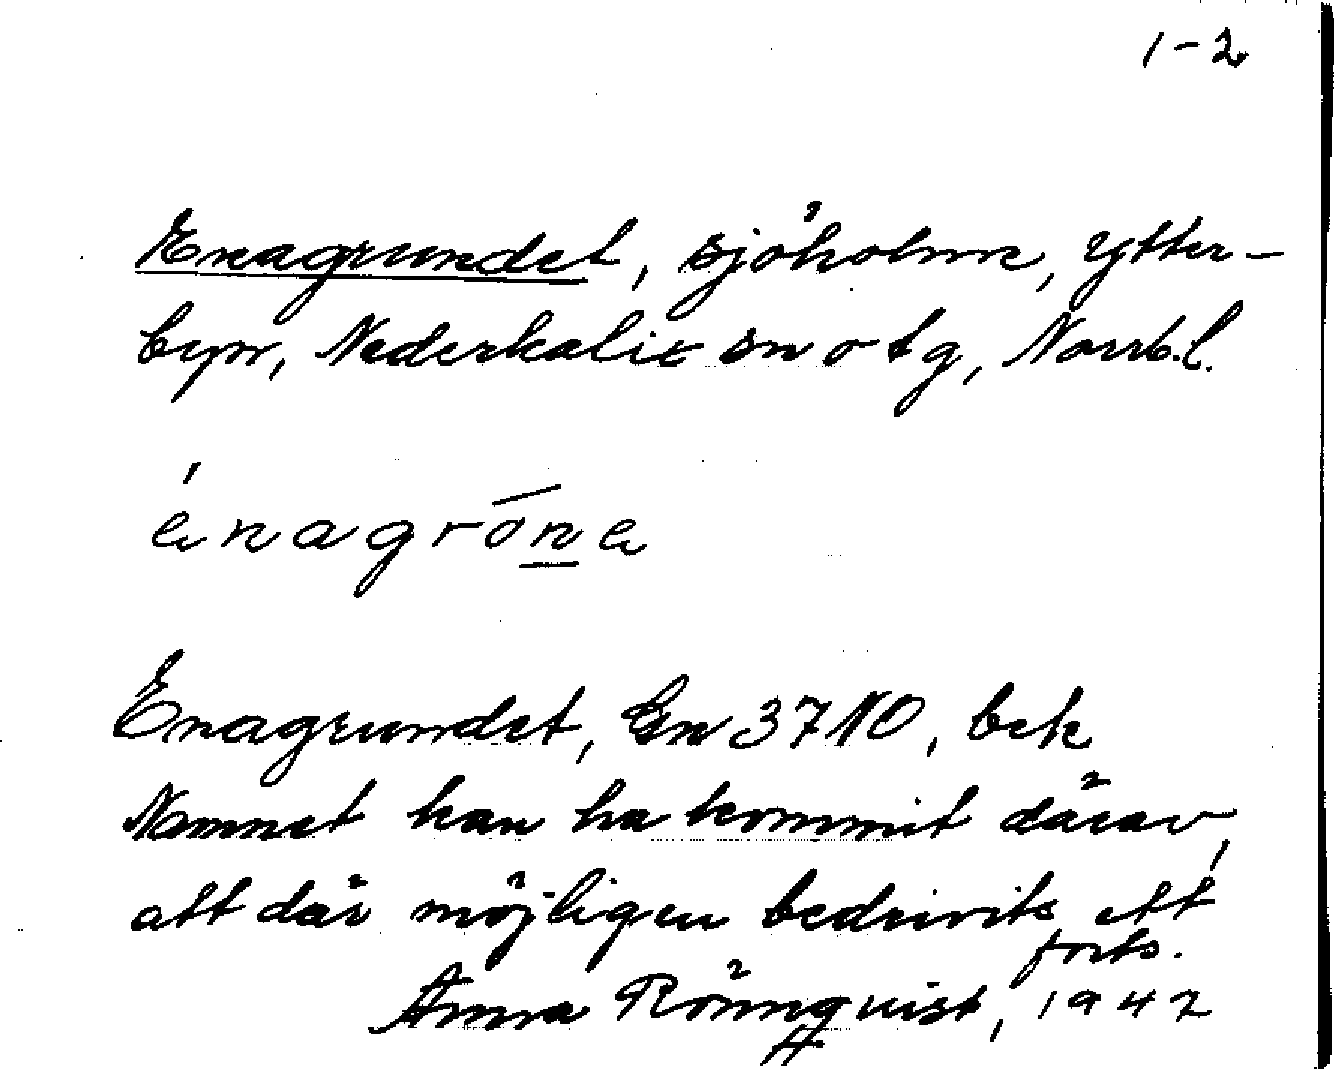 1-2
Enagrundet, sjöholme, Ytter-
byn, Nederkalix sn o tg, Norrb.l.
énagróne
Enagrundet, Gn 37 NO, bek
Namnet kan ha kommit därav,
att där möjligen bedrivits ett
forts.
Anna Rönnquist, 1942